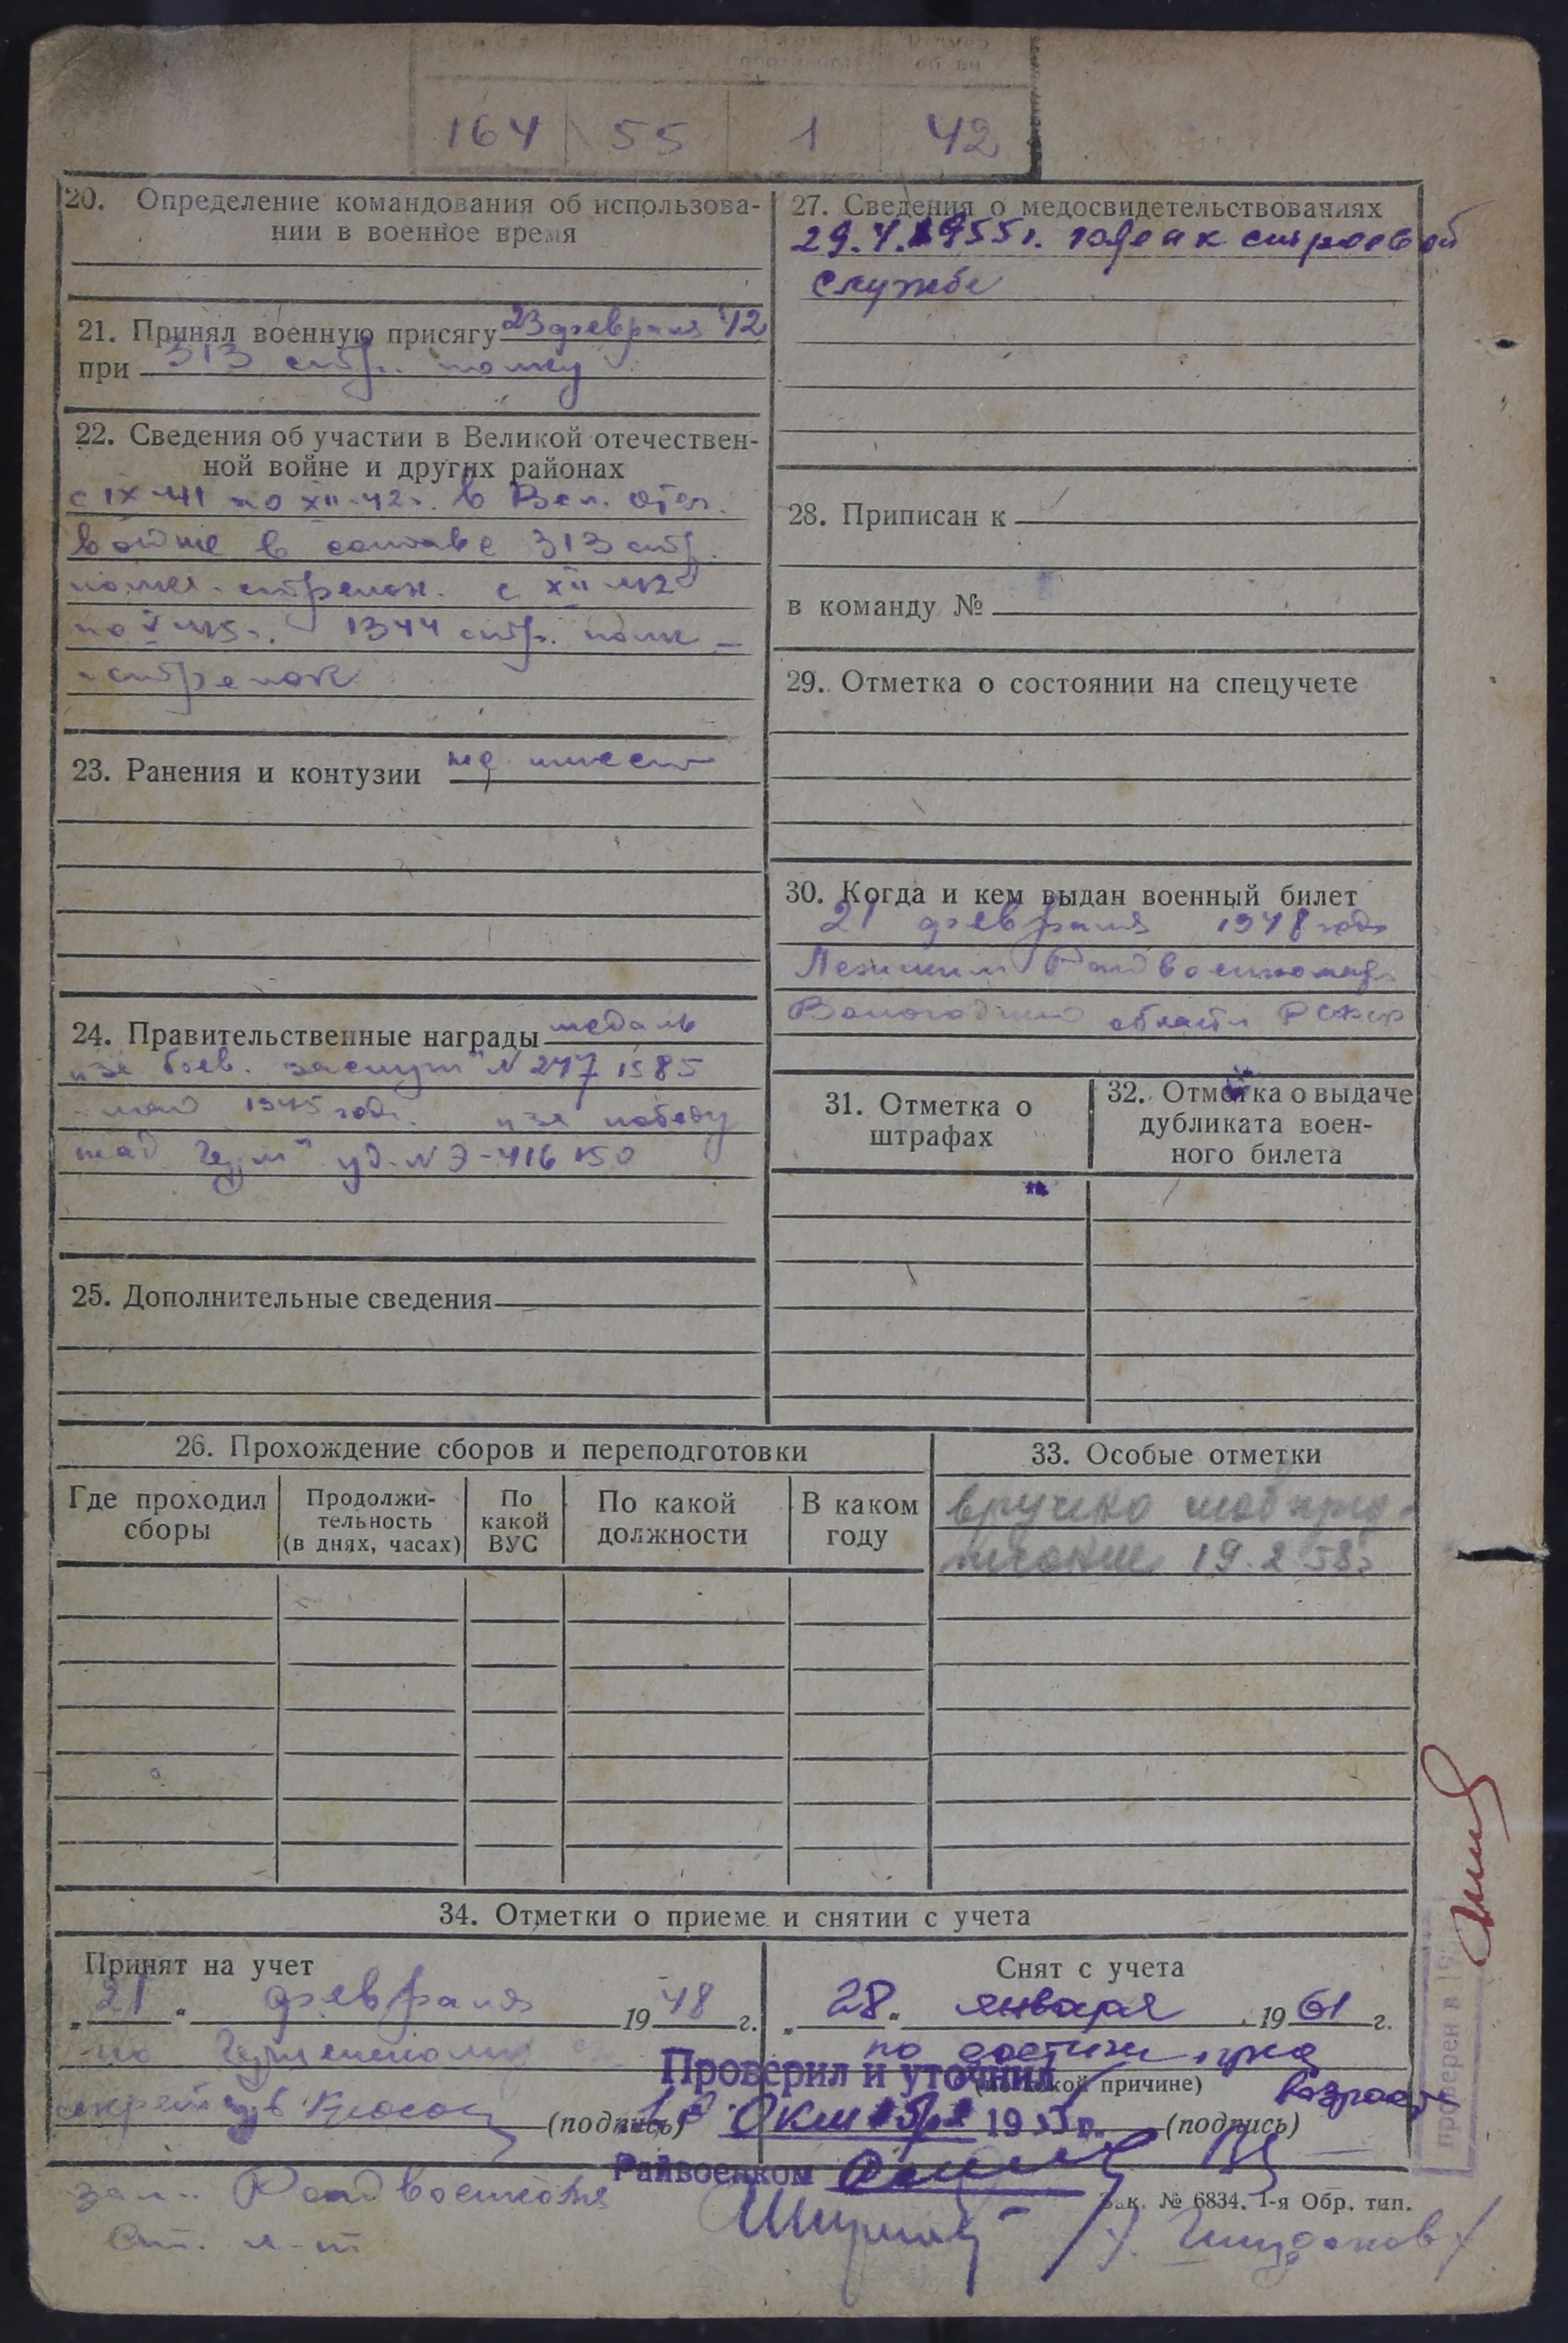 164 55 1 42
20. Определение командования об использова-
нии в военное время
21. Принял военную присягу 23 февраля 42
при 313 стр. полку
22. Сведения об участии в Великой отечествен-
ной войне и других районах
с IX-41 по XII-42г. в Вел. Отеч.
войне в составе 313 стр.
полка - стрелок. с XII-42
по V-45г. 1344 стр. полк -
- стрелок
23. Ранения и контузии не имеет
24. Правительственные награды медаль
"за боев. заслуги" N 2471585
- май 1945 года. "за победу
над Герм" уд. N Э-416150
25. Дополнительные сведения
27. Сведения о медосвидетельствованиях
29.4.1955г. годен к строевой
службе
28. Приписан к
в команду №
29. Отметка о состоянии на спецучете
30. Когда и кем выдан военный билет
21 февраля 1948 года
Райвоенкомат.
Вологодской области РСФСР
31. Отметка о
штрафах
32. Отметка о выдаче
дубликата воен-
ного билета
26. Прохождение сборов и переподготовки
Где проходил
сборы
Продолжи-
тельность
(в днях, часах)
По
какой
ВУС
По какой
должности
В каком
году
33. Особые отметки
вручено моб пред-
писание 19.2 58г
34. Отметки о приеме и снятии с учета
Принят на учет
„21" февраля 1948 г.
по
(подпись)
зам. Райвоенкома
Ст. л-т
Снят с учета
„28" января 1961 г.
по достиж. пред
возраста
(по какой причине)
(подпись)
Проверил и уточнил
Октября 1955 г.
Райвоенком
Зак. № 6834. 1-я Обр. тип.
проверен в 19